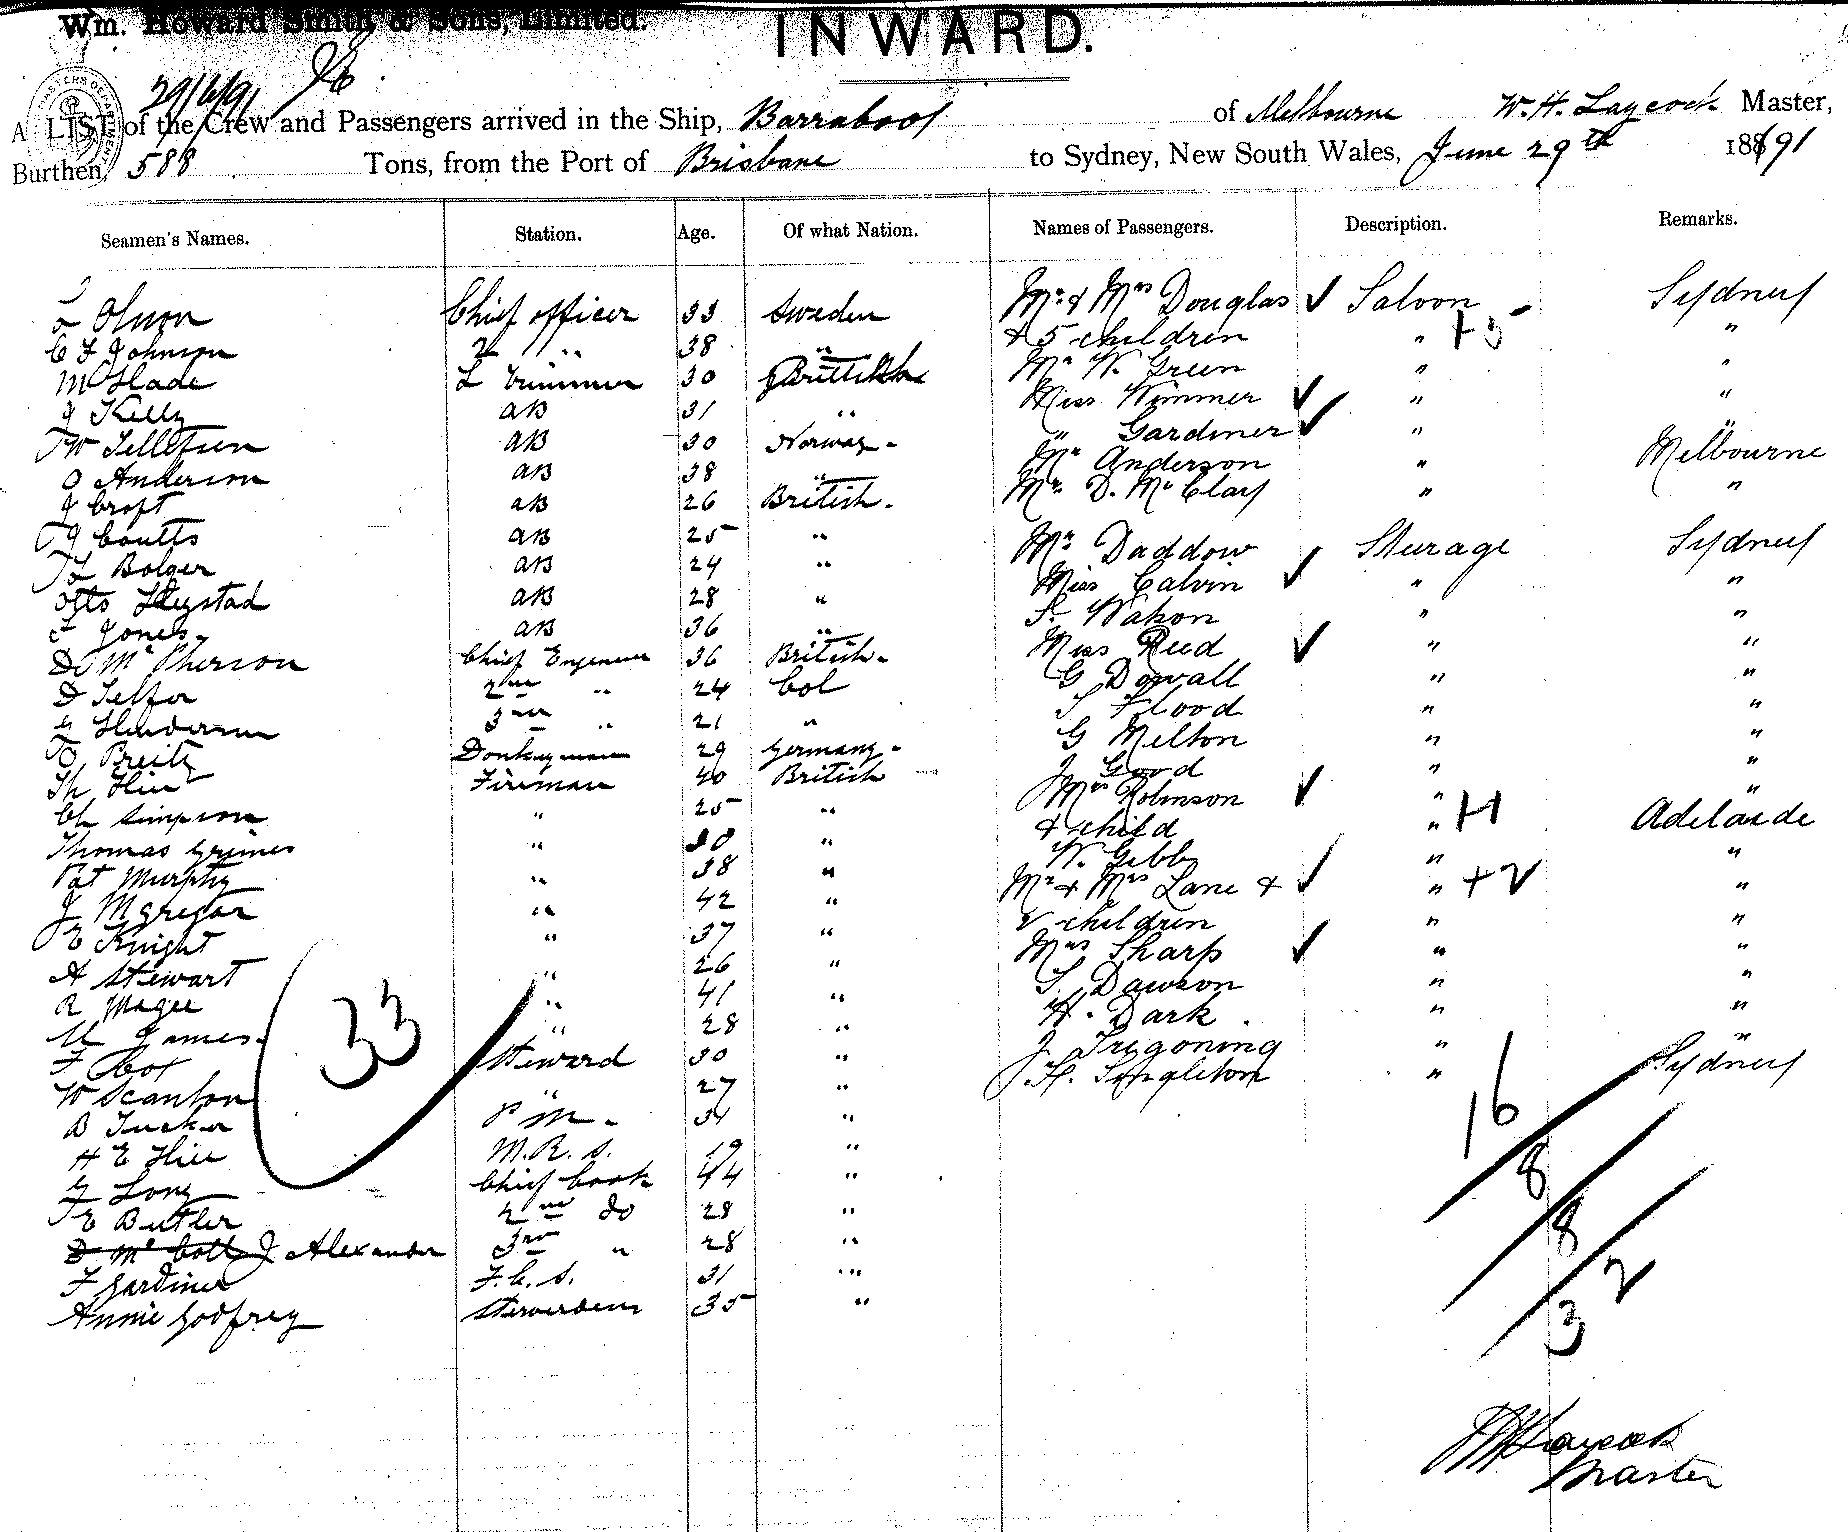 Wm. Howard Smith & Sons, Limited.
INWARD.
29/6/91
A LIST of the Crew and Passengers arrived in the Ship, Barrabool of Melbourne W. H. Laycock Master,
Burthen, 588 Tons, from the Port of Brisbane to Sydney, New South Wales, June 29th 1891
Seamen's Names. Station. Age. Of what Nation. Names of Passengers. Description. Remarks.
Olsson Chief officer 33 Sweden Mr & Mrs Douglas ✓ Saloon Sydney
C F Johnson 2 " 38 " & 5 children " +5 "
M Slade L Trimmer 30 British Mr W. Green " "
J Kelly AB 31 " Miss Wimmer ✓ " "
W Tellefsen AB 30 Norway - " Gardiner ✓ " "
O Anderson AB 38 " Mr Anderson " Melbourne
J Croft AB 26 British - Mr D. McClay " "
J Coutts AB 25 " Mr Daddow Sturage Sydney
Bolger AB 24 " Miss Calvin ✓ " "
Otto AB 28 " S. Watson " "
F Jones AB 36 " Miss Reed ✓ " "
D McPherson Chief Engineer 36 British - G Dowall " "
D Telfer 2nd " 24 Col S Flood " "
G Henderson 3rd " 21 " G Melton " "
O Breitz Donkeyman 29 Germany - J Good " "
Th Hill Fireman 40 British Mrs Robinson ✓ " "
Ch Simpson " 25 " & child " +1 Adelaide
Thomas Grimes " 30 " W. Gibbs " "
Pat Murphy " 38 " Mr & Mrs Lane & ✓ " +2 "
J McGregor " 42 " 2 children " "
E Knight " 37 " Mrs Sharp ✓ " "
A Stewart " 26 " S. Dawson " "
R Magee " 41 " H. Dark " "
M James " 28 " J Tregoning " "
F Cox Steward 30 " J. H. Singleton " Sydney
W Scanlon " 27 "
B Tucker P M - 31 "
H E Hill M. R. S. 19 "
G Long Chief Cook 44 "
E Butler 2nd do 28 "
D McColl J Alexander 3rd " 28 "
F Gardiner F. C. S. 31 "
Annie Godfrey Stewardess 35 "
33
16
8
8
2
3
W H Laycock
Master